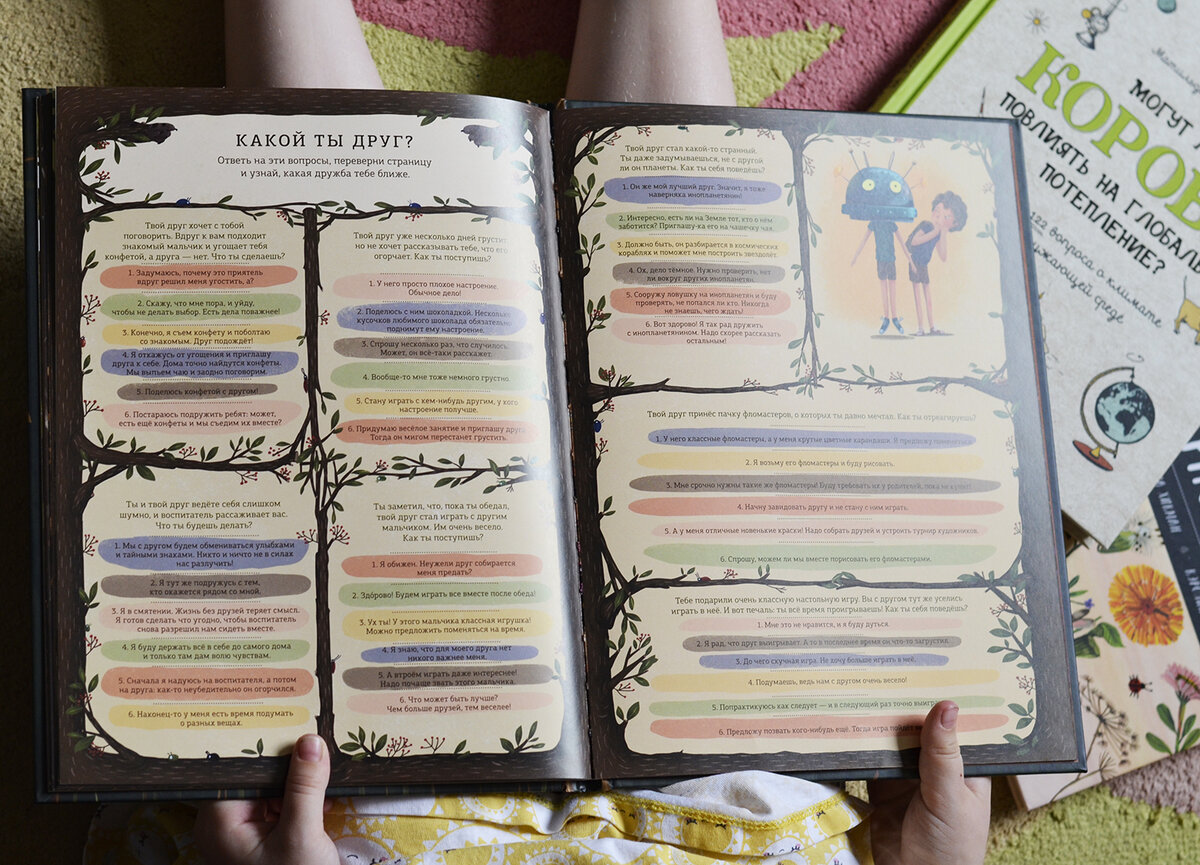 КАКОЙ ТЫ ДРУГ?
Ответь на эти вопросы, переверни страницу
и узнай, какая дружба тебе ближе.
Твой друг хочет с тобой
поговорить. Вдруг к вам подходит
знакомый мальчик и угощает тебя
конфетой, а друга — нет. Что ты сделаешь?
1. Задумаюсь, почему это приятель
вдруг решил меня угостить, а?
2. Скажу, что мне пора, и уйду,
чтобы не делать выбор. Есть дела поважнее!
3. Конечно, я съем конфету и поболтаю
со знакомым. Друг подождёт!
4. Я откажусь от угощения и приглашу
друга к себе. Дома точно найдутся конфеты.
Мы выпьем чаю и заодно поговорим.
5. Поделюсь конфетой с другом!
6. Постараюсь подружить ребят: может,
есть ещё конфеты и мы съедим их вместе?
Твой друг уже несколько дней грустит,
но не хочет рассказывать тебе, что его
огорчает. Как ты поступишь?
1. У него просто плохое настроение.
Обычное дело!
2. Поделюсь с ним шоколадкой. Несколько
кусочков любимого шоколада обязательно
поднимут ему настроение.
3. Спрошу несколько раз, что случилось.
Может, он всё-таки расскажет.
4. Вообще-то мне тоже немного грустно.
5. Стану играть с кем-нибудь другим, у кого
настроение получше.
6. Придумаю весёлое занятие и приглашу друга.
Тогда он мигом перестанет грустить.
Ты и твой друг ведёте себя слишком
шумно, и воспитатель рассаживает вас.
Что ты будешь делать?
1. Мы с другом будем обмениваться улыбками
и тайными знаками. Никто и ничто не в силах
нас разлучить!
2. Я тут же подружусь с тем,
кто окажется рядом со мной.
3. Я в смятении. Жизнь без друзей теряет смысл.
Я готов сделать что угодно, чтобы воспитатель
снова разрешил нам сидеть вместе.
4. Я буду держать всё в себе до самого дома
и только там дам волю чувствам.
5. Сначала я надуюсь на воспитателя, а потом
на друга: как-то неубедительно он огорчился.
6. Наконец-то у меня есть время подумать
о разных вещах.
Ты заметил, что, пока ты обедал,
твой друг стал играть с другим
мальчиком. Им очень весело.
Как ты поступишь?
1. Я обижен. Неужели друг собирается
меня предать?
2. Здо́рово! Будем играть все вместе после обеда!
3. Ух ты! У этого мальчика классная игрушка!
Можно предложить поменяться на время.
4. Я знаю, что для моего друга нет
никого важнее меня.
5. А втроём играть даже интереснее!
Надо почаще звать этого мальчика.
6. Что может быть лучше?
Чем больше друзей, тем веселее!
Твой друг стал какой-то странный.
Ты даже задумываешься, не с другой
ли он планеты. Как ты себя поведёшь?
1. Он же мой лучший друг. Значит, я тоже
наверняка инопланетянин!
2. Интересно, есть ли на Земле тот, кто о нём
заботится? Приглашу-ка его на чашечку чая.
3. Должно быть, он разбирается в космических
кораблях и поможет мне построить звездолёт.
4. Ох, дело тёмное. Нужно проверить, нет
ли вокруг других инопланетян.
5. Сооружу ловушку на инопланетян и буду
проверять, не попался ли кто. Никогда
не знаешь, чего ждать!
6. Вот здорово! Я так рад дружить
с инопланетянином. Надо скорее рассказать
остальным!
Твой друг принёс пачку фломастеров, о которых ты давно мечтал. Как ты отреагируешь?
1. У него классные фломастеры, а у меня крутые цветные карандаши. Я предложу поменяться.
2. Я возьму его фломастеры и буду рисовать.
3. Мне срочно нужны такие же фломастеры! Буду требовать их у родителей, пока не купят!
4. Начну завидовать другу и не стану с ним играть.
5. А у меня отличные новенькие краски! Надо собрать друзей и устроить турнир художников.
6. Спрошу, можем ли мы вместе порисовать его фломастерами.
Тебе подарили очень классную настольную игру. Вы с другом тут же уселись
играть в неё. И вот печаль: ты всё время проигрываешь! Как ты себя поведёшь?
1. Мне это не нравится, и я буду дуться.
2. Я рад, что друг выигрывает. А то в последнее время он что-то загрустил.
3. До чего скучная игра. Не хочу больше играть в неё.
4. Подумаешь, ведь нам с другом очень весело!
5. Попрактикуюсь как следует — и в следующий раз точно
6. Предложу позвать кого-нибудь ещё. Тогда игра пойдёт
МОГУТ
КОРОВ
ПОВЛИЯТЬ НА ГЛОБАЛЬ
ПОТЕПЛЕНИЕ?
122 вопроса о климате